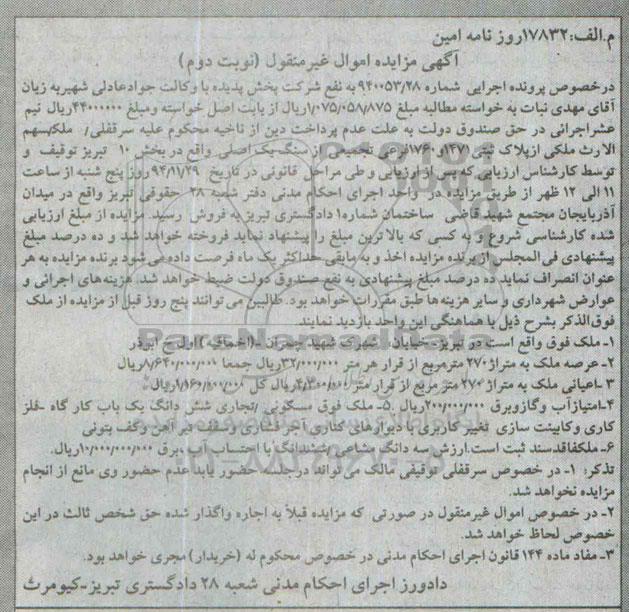 م.الف:۱۷۸۳۲روز نامه امین
آگهی مزایده اموال غیرمنقول (نوبت دوم)
درخصوص پرونده اجرایی شماره ۹۴۰۰۵۳/۲۸ به نفع شرکت پخش پدیده با وکالت جوادعادلی شهیربه زیان
آقای مهدی نبات به خواسته مطالبه مبلغ ۱/۰۷۵/۰۵۸/۸۷۵ریال از بابت اصل خواسته ومبلغ ۴۴۰۰۰۰۰۰ریال نیم
عشراجرائی در حق صندوق دولت به علت عدم پرداخت دین از ناحیه محکوم علیه سرقفلی/ ملک/سهم
الارث ملکی ازپلاک ثبتی تخصیصی از سنگ یک اصلی واقع در بخش ۱۰ تبریز توقیف و
توسط کارشناس ارزیابی که پس از ارزیابی و طی مراحل قانونی در تاریخ ۹۴/۱۱/۲۹ روز پنج شنبه از ساعت
۱۱ الی ۱۲ ظهر از طریق مزایده در واحد اجرای احکام مدنی دفتر شعبه ۲۸ حقوقی تبریز واقع در میدان
آذربایجان مجتمع شهید قاضی ساختمان شماره۱ دادگستری تبریز به فروش رسید. مزایده از مبلغ ارزیابی
شده کارشناسی شروع و به کسی که بالاترین مبلغ را پیشنهاد نماید فروخته خواهد شد و ده درصد مبلغ
پیشنهادی فی المجلس از برنده مزایده اخذ و به مابقی حداکثر یک ماه فرصت داده می شود برنده مزایده به هر
عنوان انصراف نماید ده درصد مبلغ پیشنهادی به نفع صندوق دولت ضبط خواهد شد. هزینه‌های اجرائی و
عوارض شهرداری و سایر هزینه‌ها طبق مقررات خواهد بود. طالبین می توانند پنج روز قبل از مزایده از ملک
فوق‌الذکر بشرح ذیل با هماهنگی این واحد بازدید نمایند.
۱- ملک فوق واقع است در تبریز- خیابان شهرک شهید چمران -(اخماقیه) اول خ ابوذر
۲-عرصه ملک به متراژ۲۷۰ مترمربع از قرار هر متر ۳۲/۰۰۰/۰۰۰ریال جمعا ۸/۶۴۰/۰۰۰/۰۰۰ریال
۳-اعیانی ملک به متراژ ۲۷۰ متر مربع از قرار متر ریال کل ریال
۴-امتیازآب وگازوبرق ۲۰۰/۰۰۰/۰۰۰ریال ۵- ملک فوق مسکونی /تجاری شش دانگ یک باب کار گاه -فلز
کاری وکابینت سازی تغییر کاربری با دیوارهای کناری آجر فشاری وسقف تیر آهن وکف بتونی
۶-ملکفاقدسند ثبت است.ارزش سه دانگ مشاعی ازششدانگ با احتساب آب ،برق ۱۰/۰۰۰/۰۰۰/۰۰۰ریال.
تذکر: ۱- در خصوص سرقفلی توقیفی مالک می‌تواند درجلسه حضور یابد عدم حضور وی مانع از انجام
مزایده نخواهد شد.
۲- در خصوص اموال غیرمنقول در صورتی که مزایده قبلاً به اجاره واگذار شده حق شخص ثالث در این
خصوص لحاظ خواهد شد.
۳- مفاد ماده ۱۴۴ قانون اجرای احکام مدنی در خصوص محکوم له (خریدار) مجری خواهد بود.
دادورز اجرای احکام مدنی شعبه ۲۸ دادگستری تبریز-کیومرث
ParsNamadData